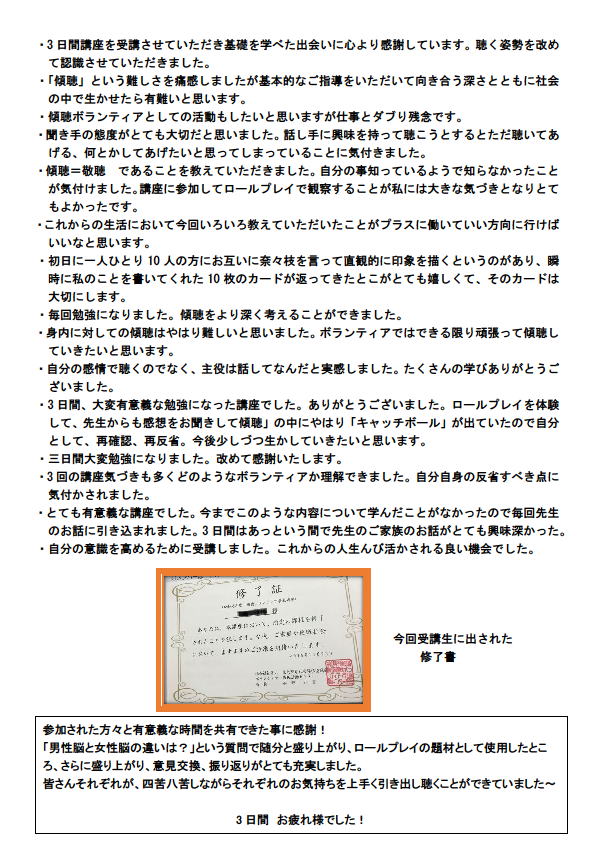 ・3日間講座を受講させていただき基礎を学べた出会いに心より感謝しています。聴く姿勢を改め
て認識させていただきました。
・「傾聴」という難しさを痛感しましたが基本的なご指導をいただいて向き合う深さとともに社会
の中で生かせたら有難いと思います。
・傾聴ボランティアとしての活動もしたいと思いますが仕事とダブり残念です。
・聞き手の態度がとても大切だと思いました。話し手に興味を持って聴こうとするとただ聴いてあ
げる、何とかしてあげたいと思ってしまっていることに気付きました。
・傾聴=敬聴　であることを教えていただきました。自分の事知っているようで知らなかったこと
が気付けました。講座に参加してロールプレイで観察することが私には大きな気づきとなりとて
もよかったです。
・これからの生活において今回いろいろ教えていただいたことがプラスに働いていい方向に行けば
いいなと思います。
・初日に一人ひとり10人の方にお互いに奈々枝を言って直観的に印象を描くというのがあり、瞬
時に私のことを書いてくれた10枚のカードが返ってきたとこがとても嬉しくて、そのカードは
大切にします。
・毎回勉強になりました。傾聴をより深く考えることができました。
・身内に対しての傾聴はやはり難しいと思いました。ボランティアではできる限り頑張って傾聴し
ていきたいと思います。
・自分の感情で聴くのでなく、主役は話してなんだと実感しました。たくさんの学びありがとうご
ざいました。
・3日間、大変有意義な勉強になった講座でした。ありがとうございました。ロールプレイを体験
して、先生からも感想をお聞きして傾聴」の中にやはり「キャッチボール」が出ていたので自分
として、再確認、再反省。今後少しづつ生かしていきたいと思います。
・三日間大変勉強になりました。改めて感謝いたします。
・3回の講座気づきも多くどのようなボランティアか理解できました。自分自身の反省すべき点に
気付かされました。
・とても有意義な講座でした。今までこのような内容について学んだことがなかったので毎回先生
のお話に引き込まれました。3日間はあっという間で先生のご家族のお話がとても興味深かった。
・自分の意識を高めるために受講しました。これからの人生んび活かされる良い機会でした。
修了証
今回受講生に出された
修了書
参加された方々と有意義な時間を共有できた事に感謝！
「男性脳と女性脳の違いは？」という質問で随分と盛り上がり、ロールプレイの題材として使用したとこ
ろ、さらに盛り上がり、意見交換、振り返りがとても充実しました。
皆さんそれぞれが、四苦八苦しながらそれぞれのお気持ちを上手く引き出し聴くことができていました～
3日間　お疲れ様でした！